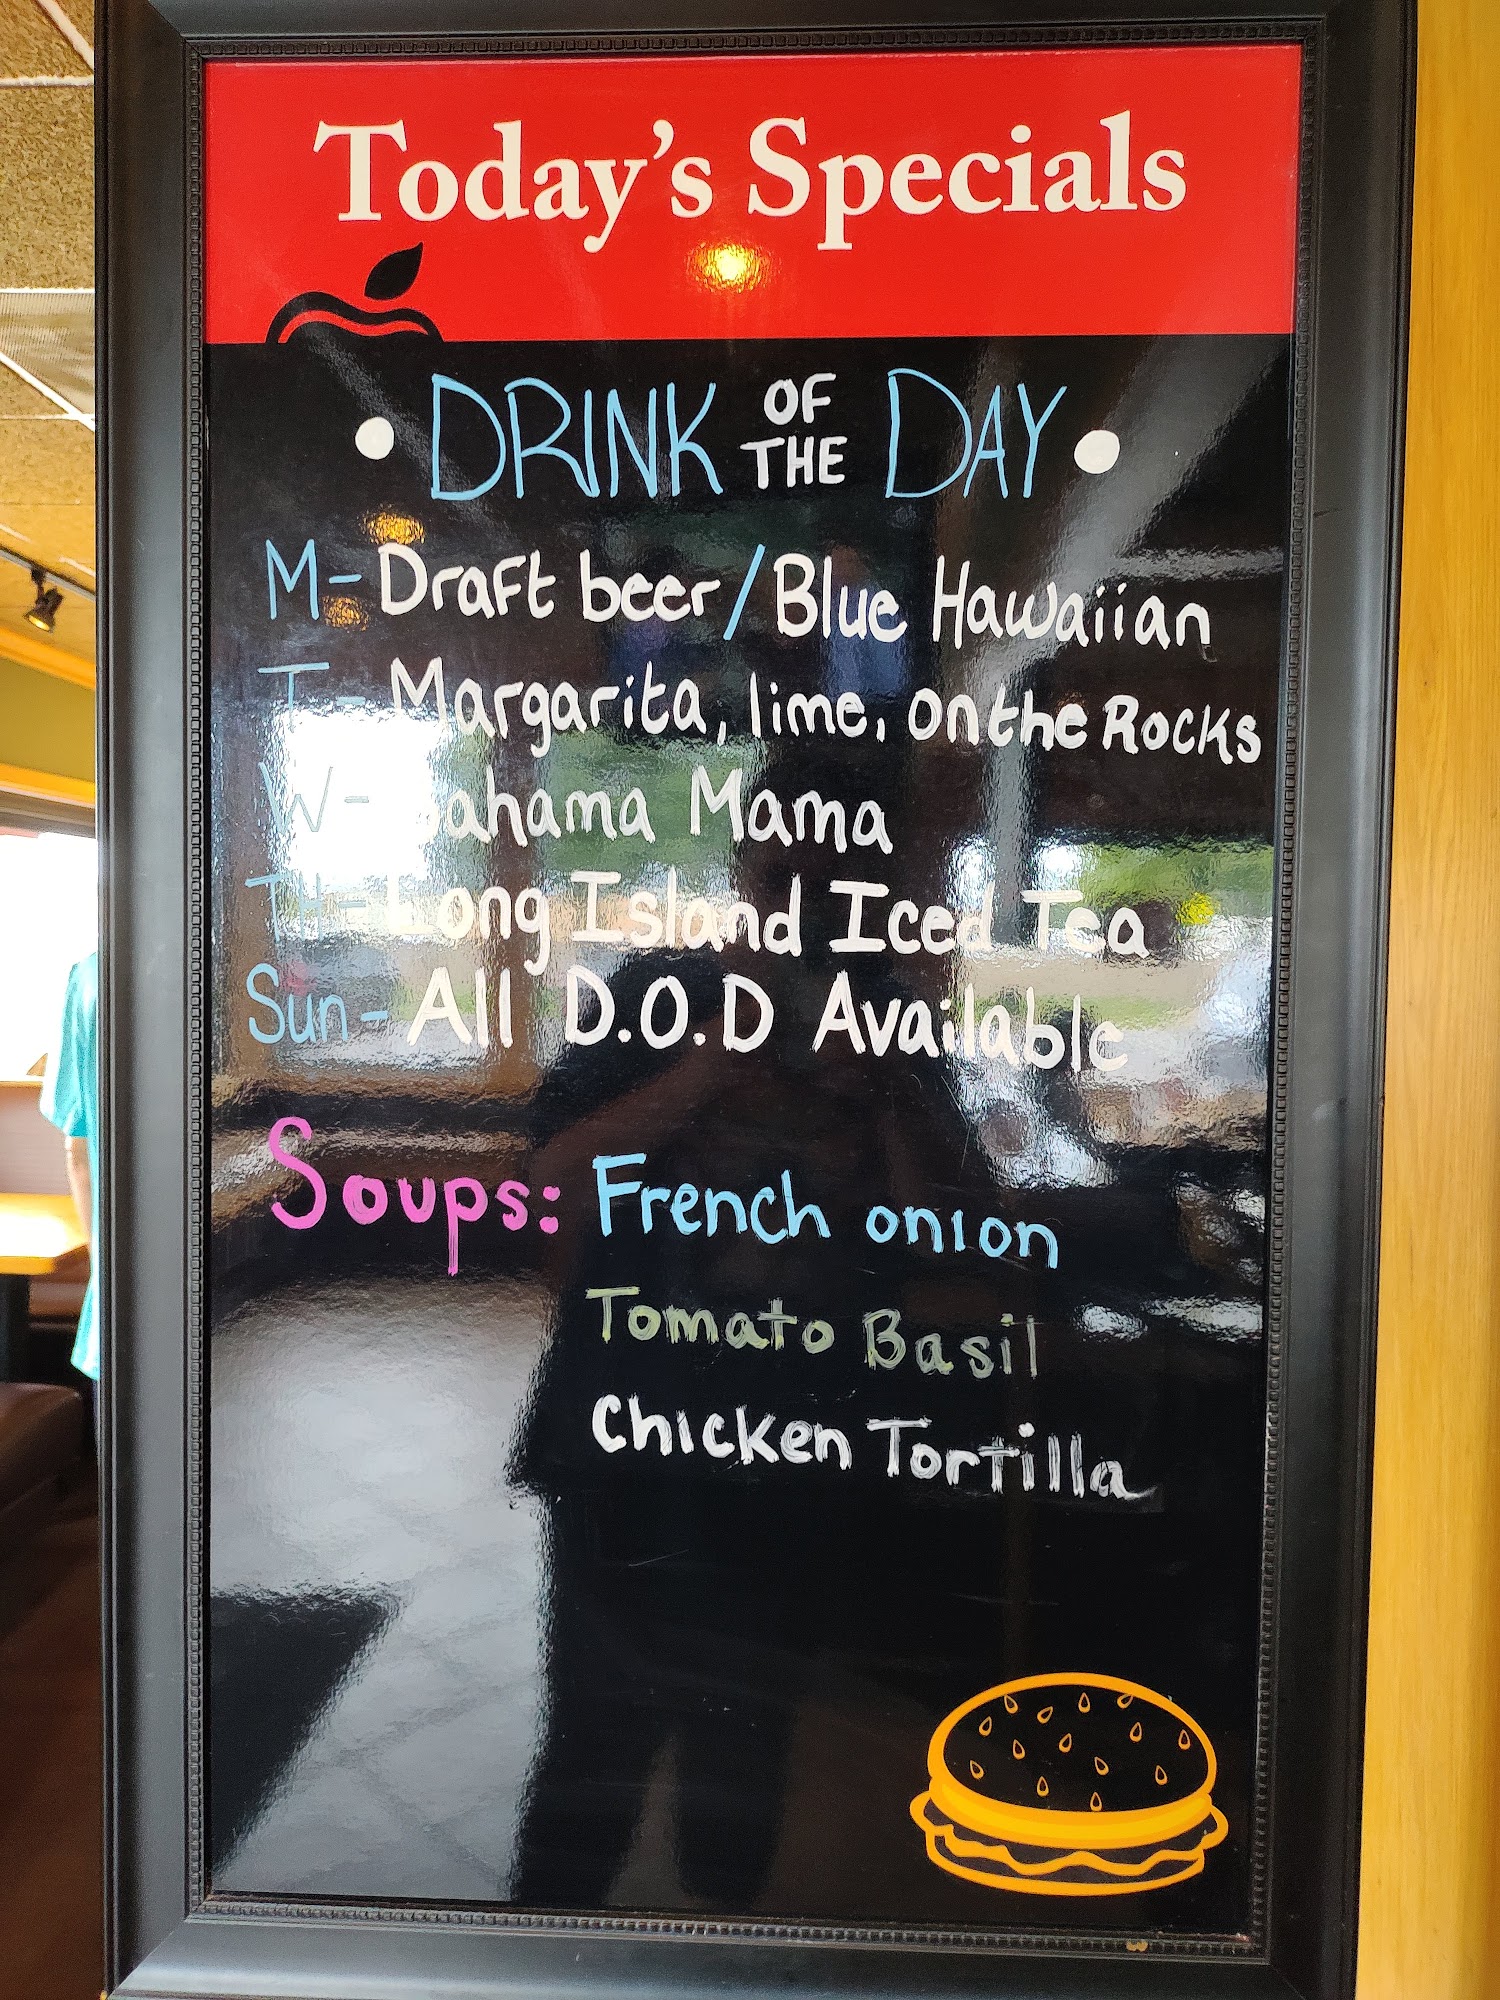 Today's Specials
• DRINK OF THE DAY •
M - Draft beer / Blue Hawaiian
T - Margarita, lime, on the Rocks
W - Bahama Mama
TH - Long Island Iced Tea
Sun - All D.O.D Available
Soups: French onion
Tomato Basil
Chicken Tortilla